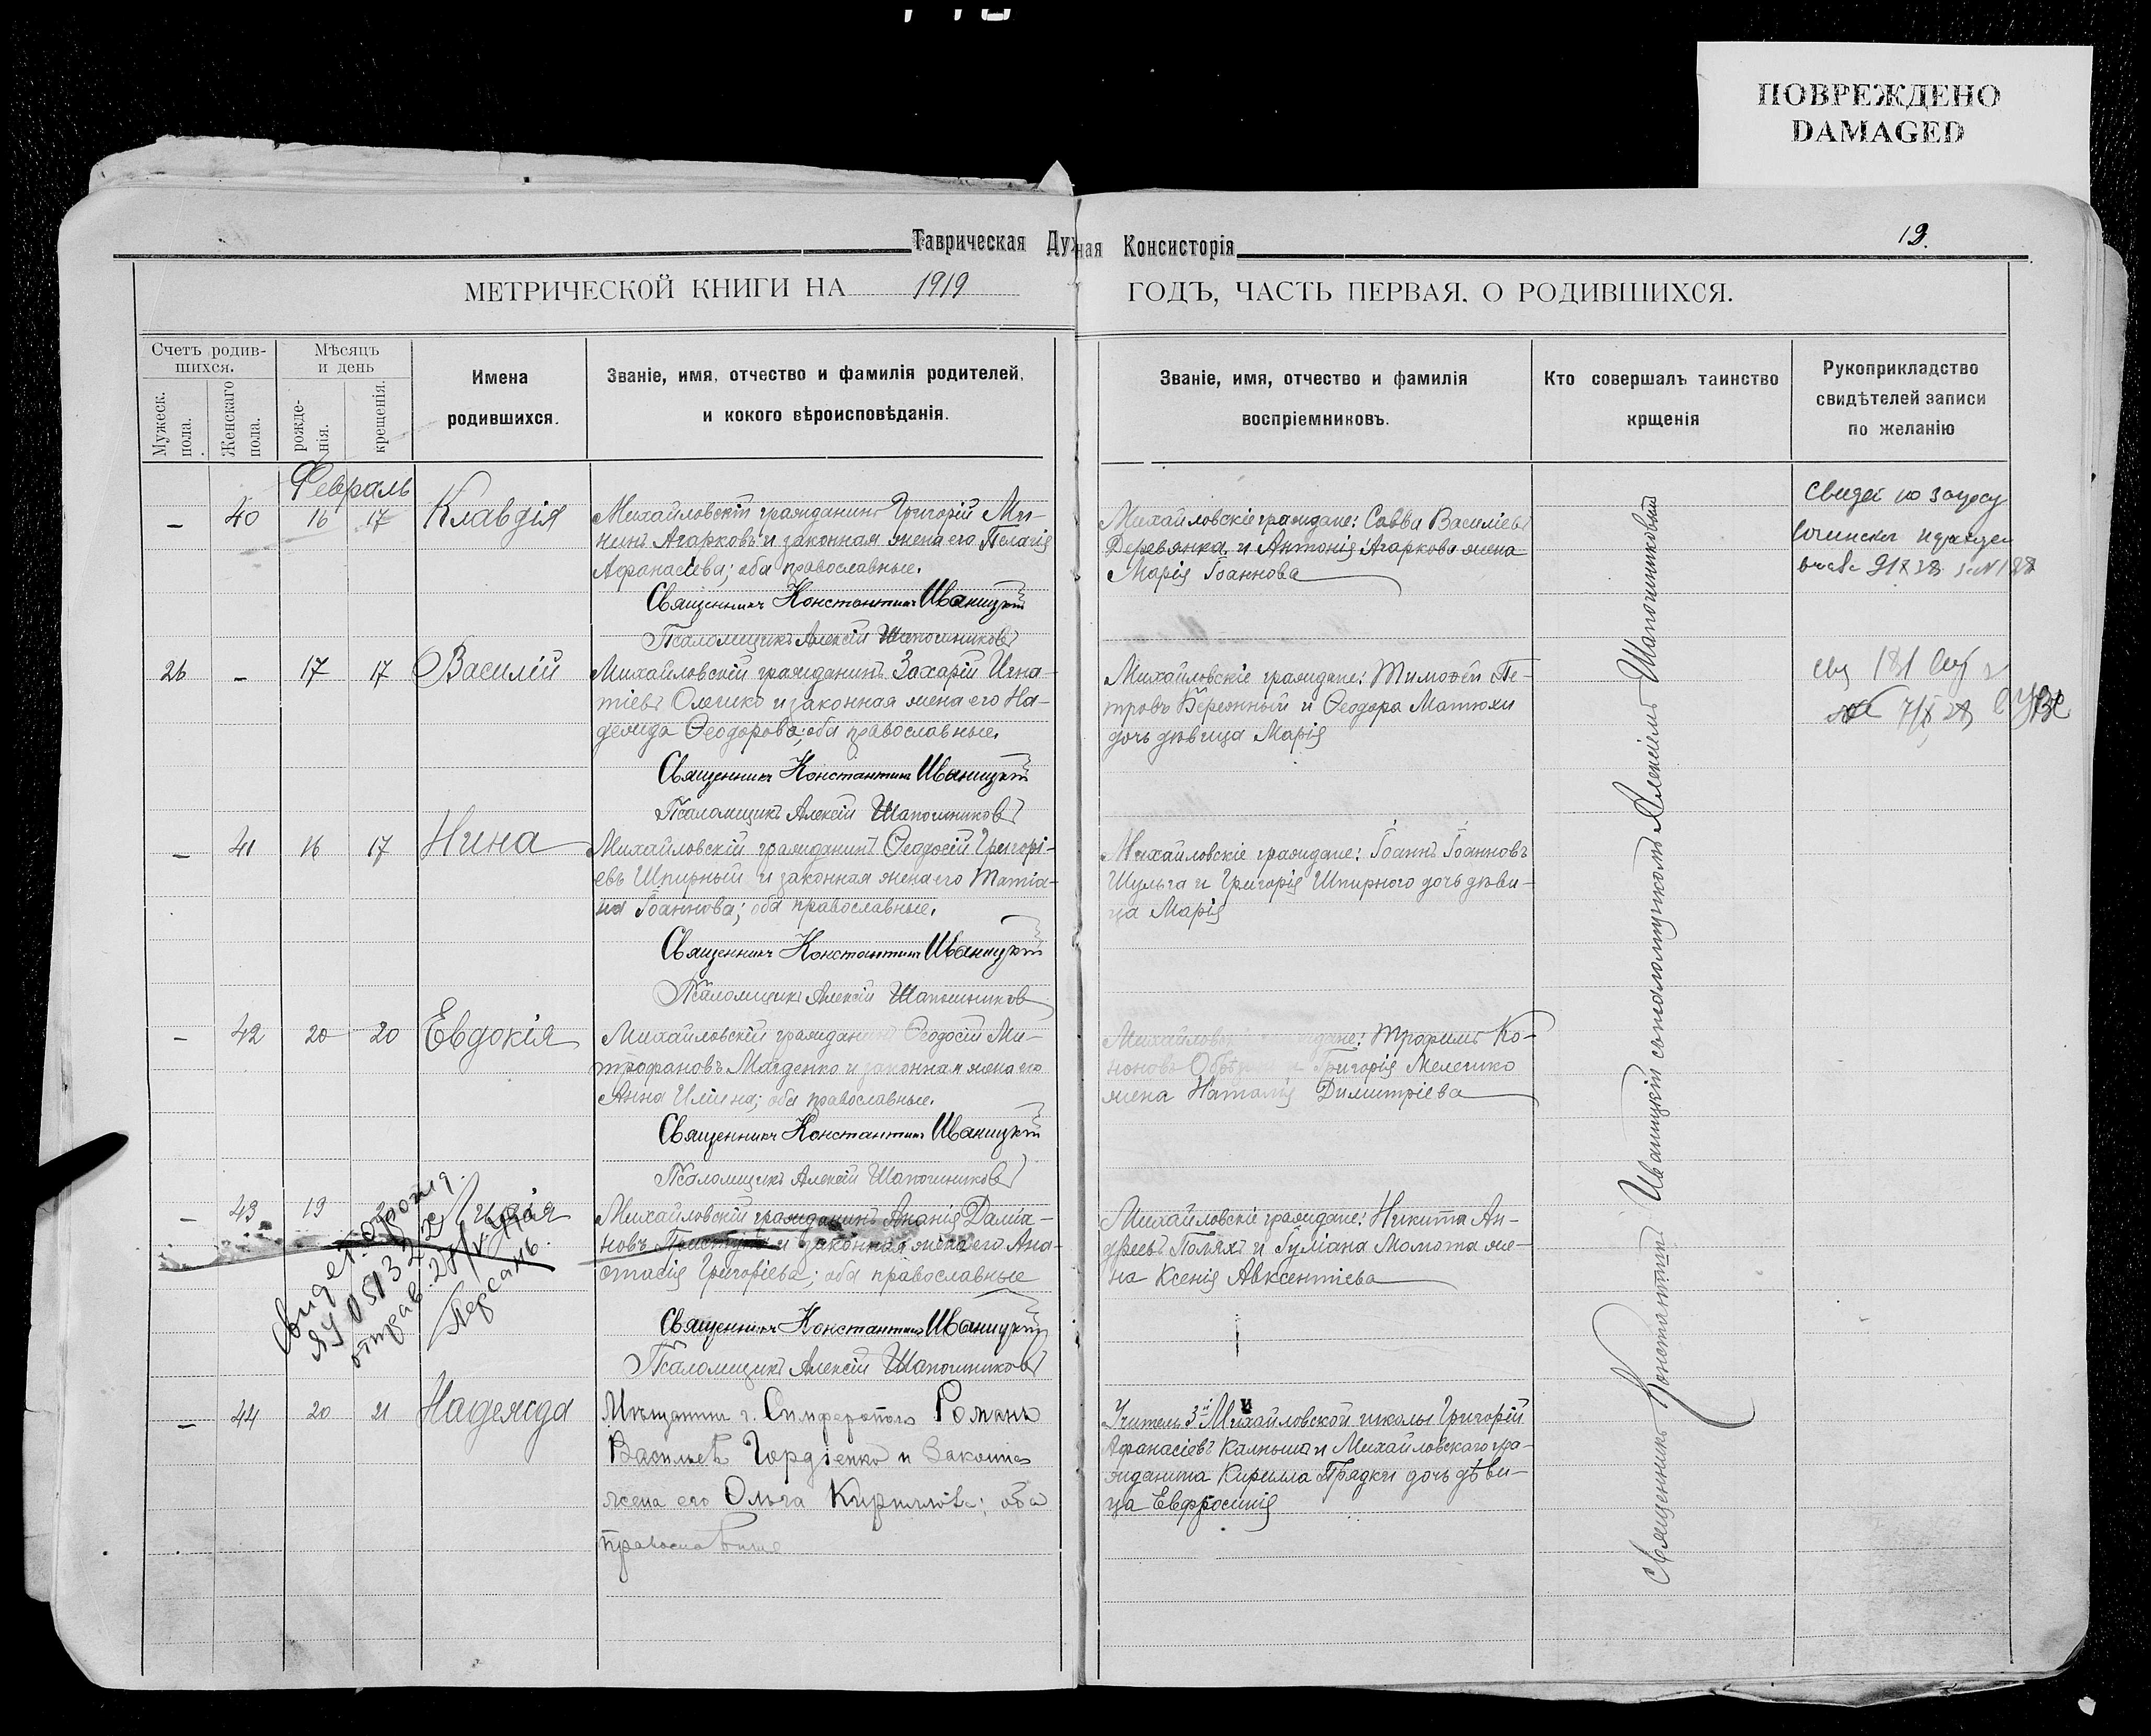 ПОВРЕЖДЕНО
DAMAGED
Таврическая Духная Консисторія
13.
МЕТРИЧЕСКОЙ КНИГИ НА 1919 ГОДЪ, ЧАСТЬ ПЕРВАЯ, О РОДИВШИХСЯ.
Счетъ родив-
шихся.
Мужеск.
пола.
Женскаго
пола.
Мѣсяцъ
и день
рожде-
нія.
крещенія.
Имена
родившихся.
Званіе, имя, отчество и фамилія родителей,
и кокого вѣроисповѣданія.
Званіе, имя, отчество и фамилія
воспріемниковъ.
Кто совершалъ таинство
крщенія
Рукоприкладство
свидѣтелей записи
по желанію
Февраль
– 40 16 17 Клавдія
Михайловскій гражданинъ Григорій Ми-
нинъ Агарковъ и законная жена его Пелагія
Афанасіева; оба православные.
Священникъ Константинъ Иваницкій
Псаломщикъ Алексій Шапошниковъ
Михайловскіе граждане: Савва Василіевъ
Деревянка и Антонія Агаркова жена
Марія Іоаннова
26 – 17 17 Василій
Михайловскій гражданинъ Захарій Игна-
тіевъ Олешко и законная жена его На-
дежда Ѳеодорова; оба православные.
Священникъ Константинъ Иваницкій
Псаломщикъ Алексій Шапошниковъ
Михайловскіе граждане: Тимоѳей Пе-
тровъ Бережный и Ѳеодора Матюхи
дочь дѣвица Марія
– 41 16 17 Нина
Михайловскій гражданинъ Ѳеодосій Григорі-
евъ Шпирный и законная жена его Татіа-
на Іоаннова; оба православные.
Священникъ Константинъ Иваницкій
Псаломщикъ Алексій Шапошниковъ
Михайловскіе граждане: Іоаннъ Іоанновъ
Шульга и Григорія Шпирного дочь дѣви-
ца Марія
– 42 20 20 Евдокія
Михайловскій гражданинъ Ѳеодосій Ми-
трофановъ Магденко и законная жена его
Анна Иліина; оба православные.
Священникъ Константинъ Иваницкій
Псаломщикъ Алексій Шапошниковъ
Михайловскіе граждане: Трофимъ Ко-
ноновъ и Григорія Мелешко
жена Наталія Димитріева
– 43 19 Лидія
Михайловскій гражданинъ Ананія Даміа-
новъ и законная жена его Ана-
стасія Григоріева; оба православные
Священникъ Константинъ Иваницкій
Псаломщикъ Алексій Шапошниковъ
Михайловскіе граждане: Никита Ан-
дреевъ Поляхъ и Іуліана Момота же-
на Ксенія Авксентіева
– 44 20 21 Надежда
Мѣщанинъ г. Симферополя Романъ
Васильевъ Гордіенко и законная
жена его Ольга Кириллова; оба
православные
Учитель 3й Михайловской школы Григорій
Афанасіевъ Калныша и Михайловскаго гра-
жданина Кирилла Прядки дочь дѣви-
ца Евфросинія
Священникъ Константинъ Иваницкій съ псаломщикомъ Алексіемъ Шапошниковымъ